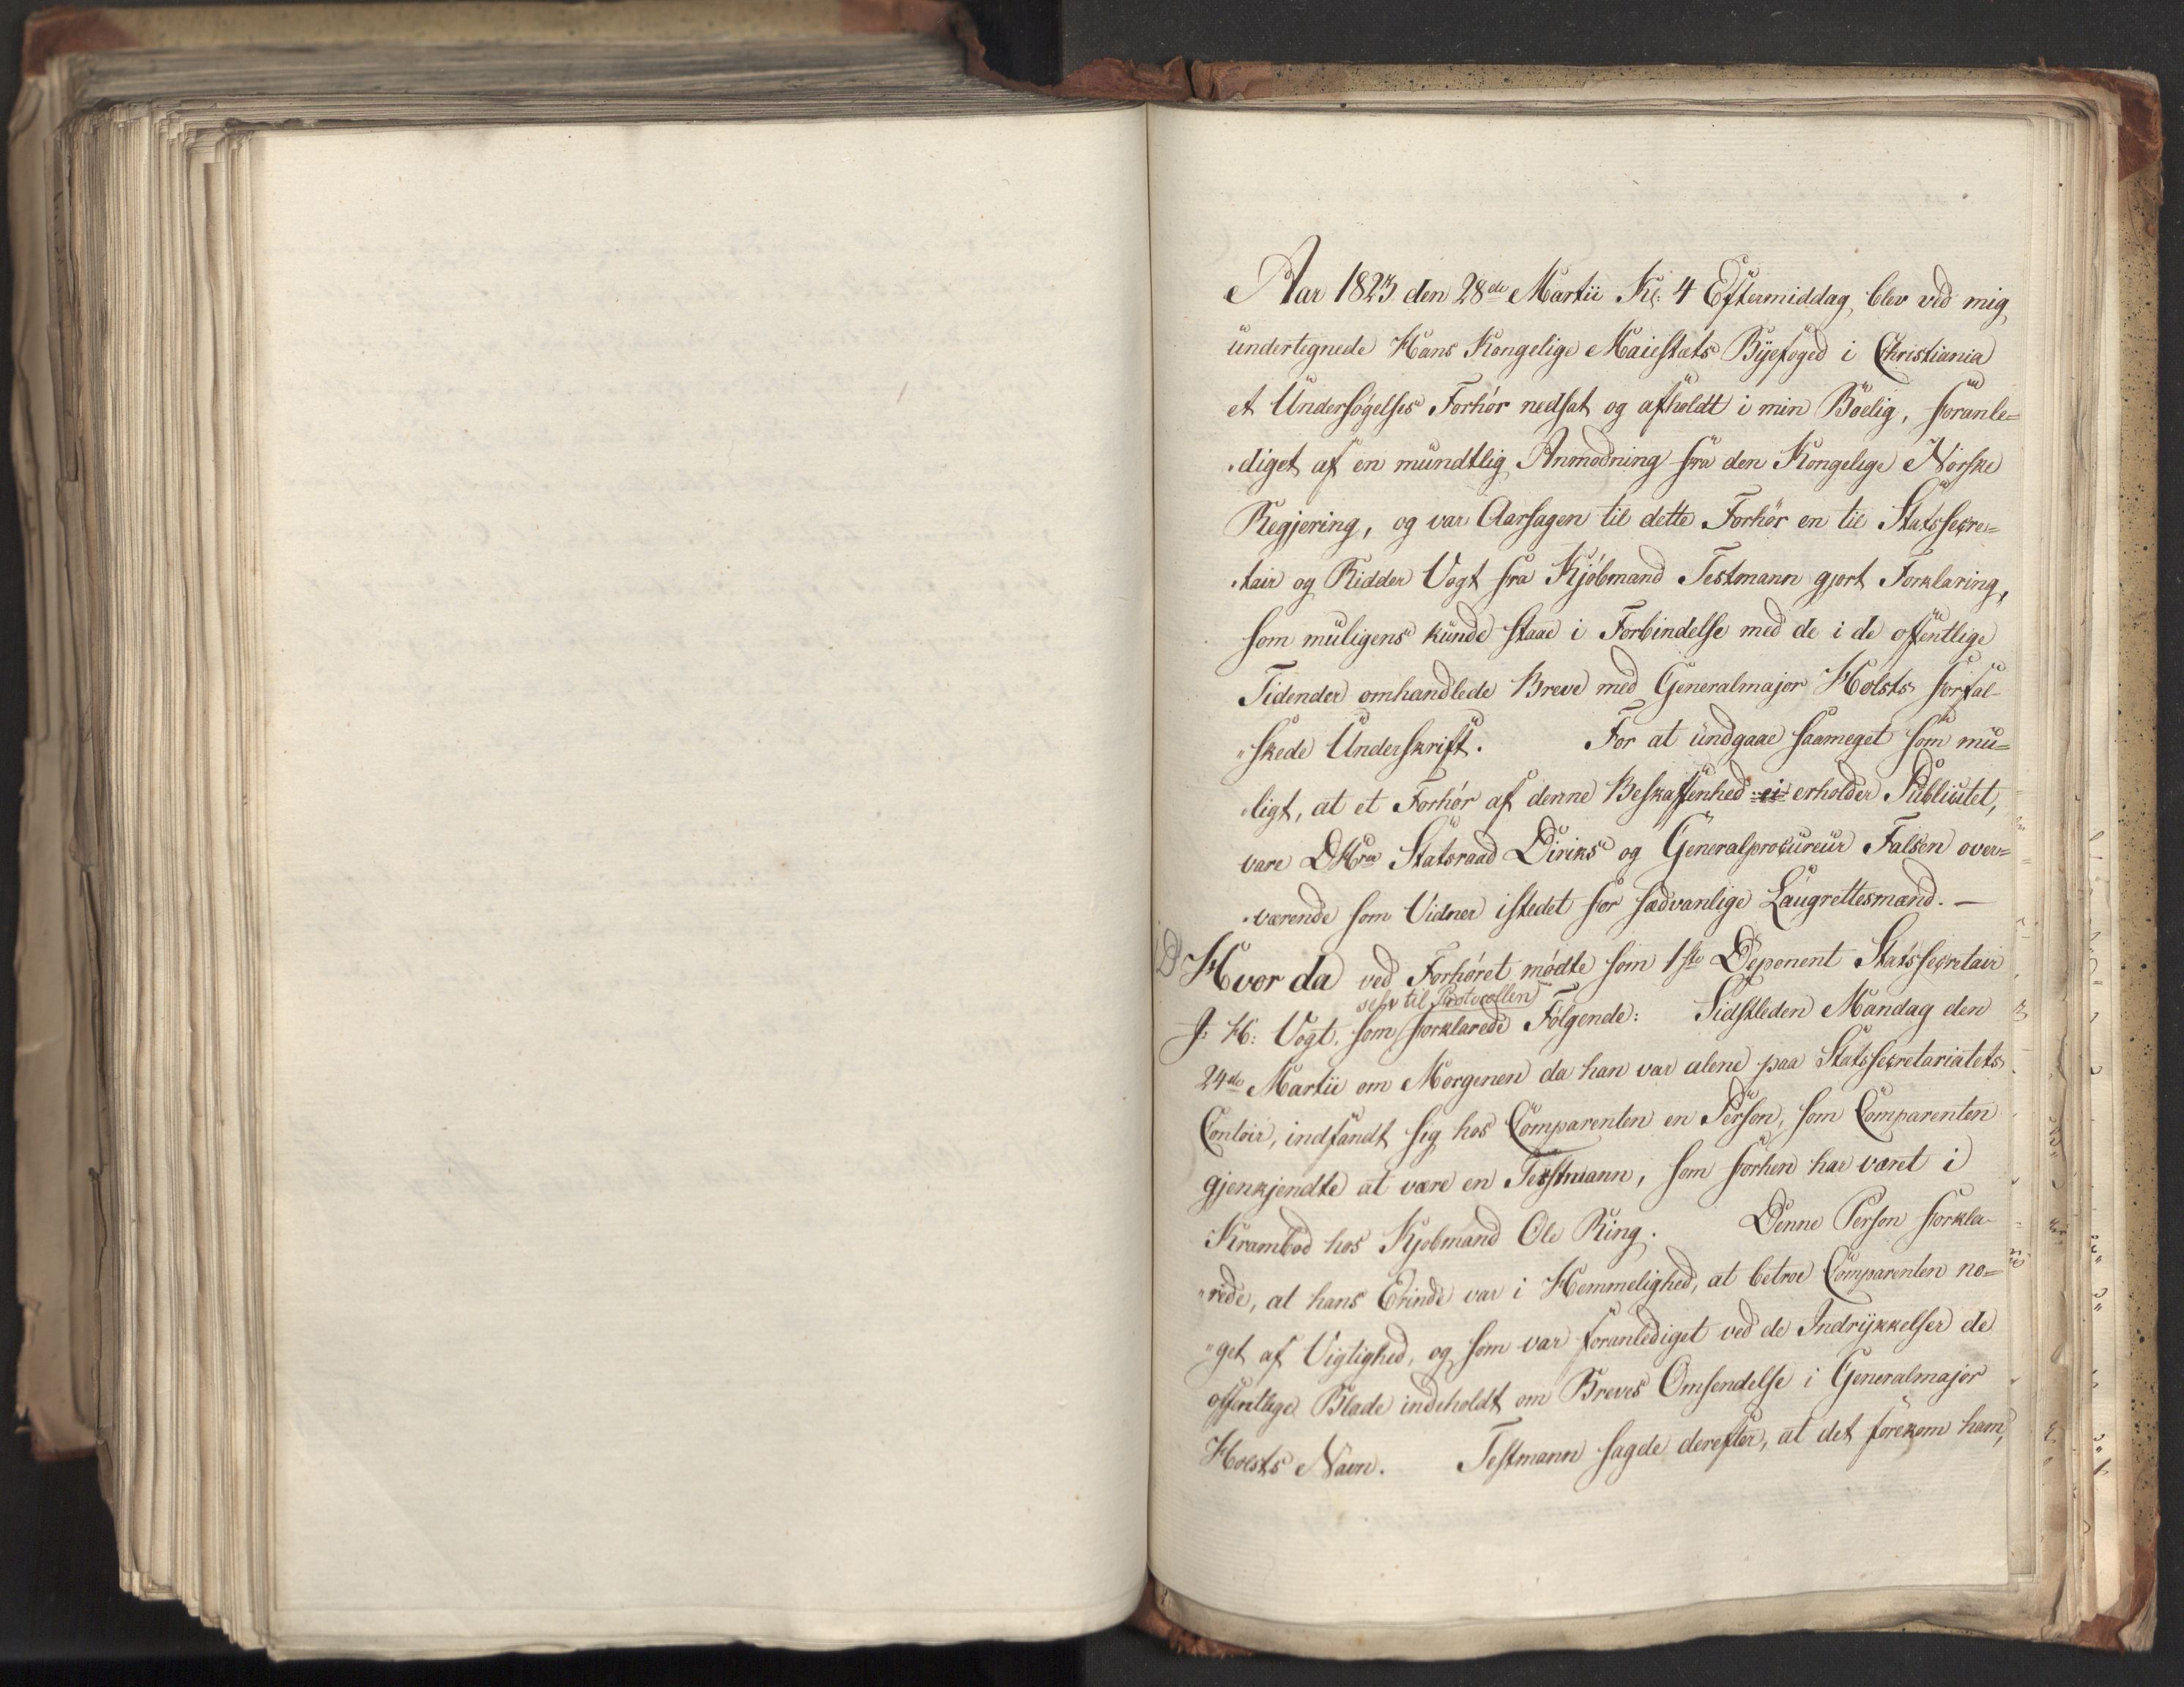 Aar 1823 den 28de Martii Kl: 4 Eftermiddag, blev ved mig
undertegnede Hans Kongelige Maiestæts Byefoged i Christiania
et Undersøgelses Forhør nedsat og afholdt i min Boelig, foranle=
„diget af en mundtlig Anmodning fra den Kongelige Norske
Regjering, og var Aarsagen til dette Forhør en til Statssecre=
„tair og Ridder Vogt fra Kjøbmand Testmann gjort Forklaring,
som muligens kunde staae i Forbindelse med de i de offentlige
Tidender omhandlede Breve med Generalmajor Holsts forfal-
„skede Underskrift. For at undgaae saameget som mu=
„ligt, at et Forhør af denne Beskaffenhed ei erholder Publicitet,
vare DHrr Statsraad Diriks og Generalprocureur Falsen over=
„værende som Vidner istedet for sædvanlige Laugrettesmænd. —
Hvor da ved Forhøret mødte som 1ste Deponent Statssecretair
selv til Protocollen
J: H: Vogt, som forklarede Følgende: Sidstleden Mandag den
24de Martii om Morgenen da han var alene paa Statssecretariatets
Contoir, indfandt sig hos Comparenten en Person, som Comparenten
gjenkjendte at være en Testmann, som forhen har været i
Krambod hos Kjøbmand Ole Ring. Denne Person forkla-
„rede, at hans Erinde var i Hemmelighed, at betroe Comparenten no=
„get af Vigtighed, og som var foranlediget ved de Indrykkelser de
offentlige Blade indeholdt om Breves Omsendelse i Generalmajor
Holsts Navn. Testmann sagde derefter, at det forekom ham,